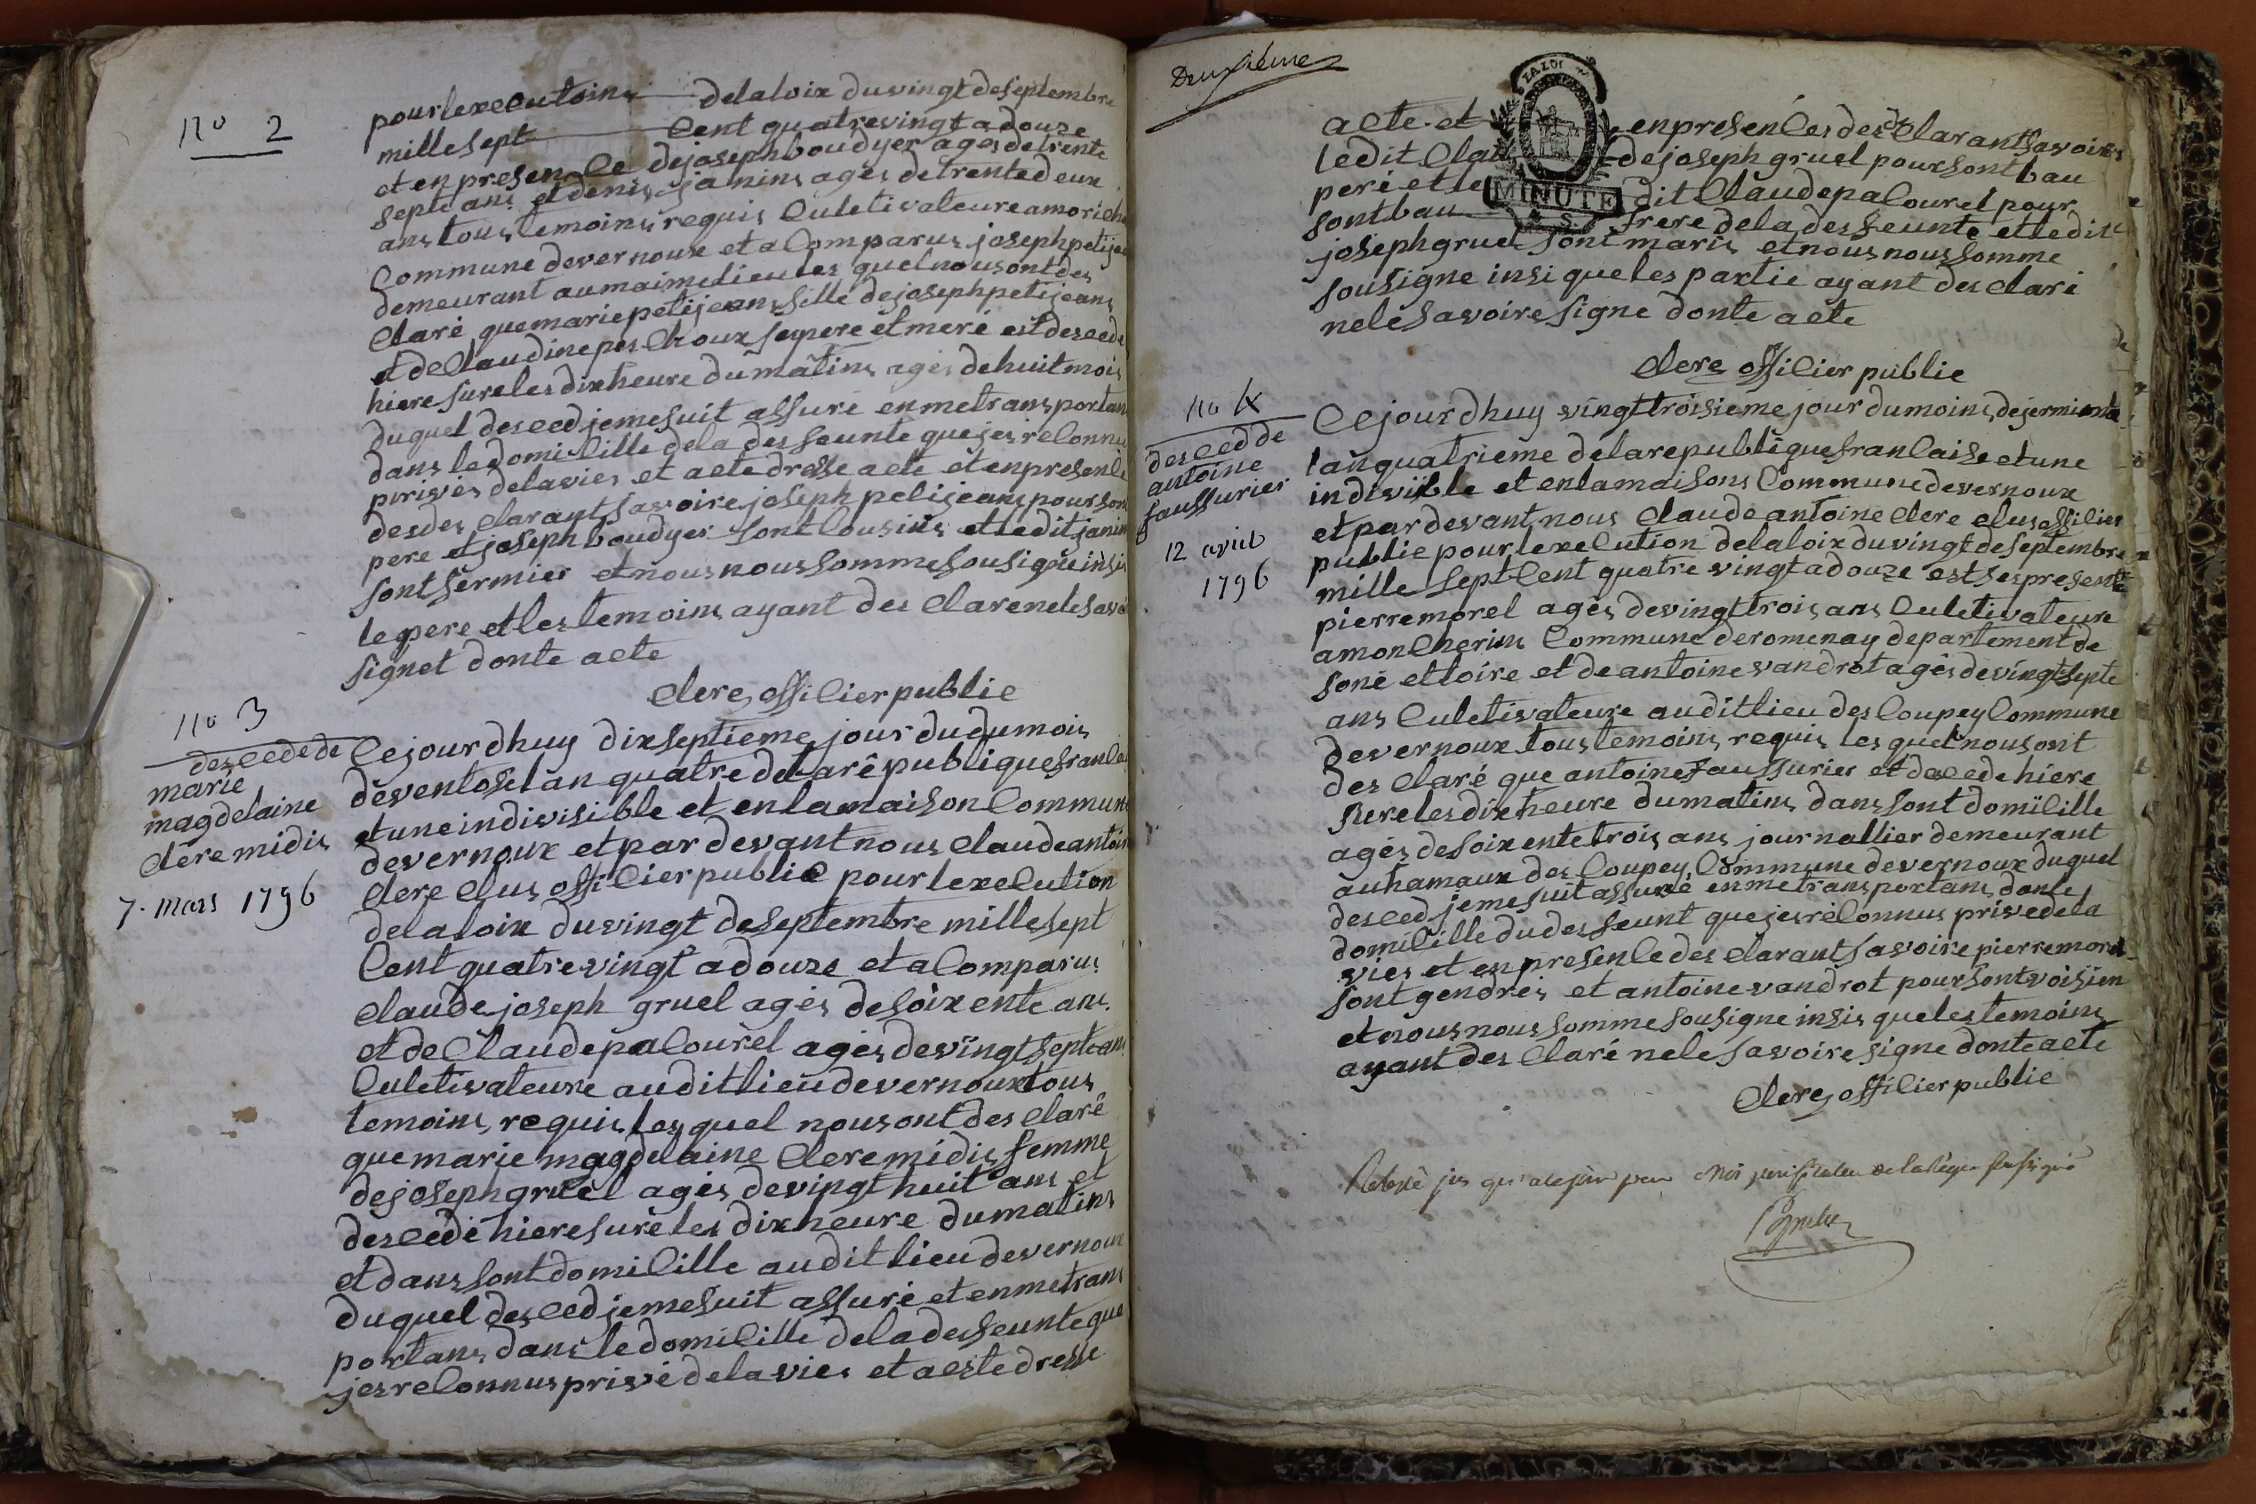 no 2
pour lexecutoins delaloix duvingt deseptembre
mille sept Cent quatrevingt a douze
et en presence dejoseph boudyer ages detrente
septe ans et denis janins ages detrentedeux
ans tous temoins requis Culetivateure amoriche
Commune devernoux et a Comparus joseph petijea
demeurant aumaimelieu les quel nousont des
Claré quemarie petijeans fille dejoseph petijeans
et deClaudine pes Choux sepere et meré est desede
hiere sureles dixheure dumâtins ages dehuit mois
duquel desced jemesuit assuré enmetransportan
dans ledomiCille dela desfeunte quejesreConnu
privés delavies et acte dresse acte et enpresenCe
desdes Clarant savoire joseph petijeans pourson
pere et joseph boudyer sont Cousins et ledit janin
sont fermier et nous nous somme sousigné insi
lepere et les temoins ayant des Clarenelesavo
signet donte acte
Clere offiCier public
no 3
desCedede
marie
magdelaine
Clere midis
7. mars 1796
Cejourdhuy dixseptieme jour dudumois
deventose lan quatre delarêpubliquefranCa
et uneindivisible et enlamaison Commune
devernoux et pardevant nous Claudeantoi
Clere Clus offiCier public pour lexeCution
delaloix duvingt deseptembre millesept
Cent quatrevingt adouze et aComparus
Claudejoseph gruel agés desoixente ans
et de Claudepalourel agés devingt septeans
Culetivateure auditlieu devernoux tous
temoins requis les quel nousont des Claré
quemarie magdelaine Clere midis femme
dejoseph gruel agés devingt huit ans et
desCede hieresureles dixheure dumatins
et dans sont domiCille auditlieu devernoux
duquel desCed jemesuit assuré et enmetrans
portans dans ledomiCille deladesfeunte que
jesreConnus privé delavies et acste dresse
Deuxsieme
acte et enpresenCes desdesClarant savoires
ledit Clau dejoseph gruel pour sont bau
peré et le dit Claudepalourel pour
sontbau frere deladesfeunte et ledit
josephgruel sont maris et nous nous somme
sousigne insi que les partie ayant des Claré
nelesavoire signe donte acte
MINUTE
Clere offiCier public
no 4
desCedde
antoine
faussurier
12 avril
1796
Cejourdhuy vingttroisiéme jour dumoins dejerminale
lanquatrieme delarepubliquefranCaise et une
indivisible et enlamaisons Commune devernoux
et pardevant nous Claude antoine Clere Clus offiCier
public pour lexeCution delaloix duvingt deseptembre
mille sept Cent quatre vingt a douze est ses presente
pierre morel agés devingt trois ans Culetivateure
amonCherins Commune deromenay departement de
sone et loire et de antoine vandrot agés devingtsepte
ans Culetivateure auditlieu des Coupey Commune
devernoux tous temoins requis les quel nousont
des Claré que antoine faussurier et desede hiere
sureles dixheure dumatins dans sont domiCille
agés desoixente trois ans journallier demeurant
auhamaux des Coupey Commune devernoux duquel
desCed jemesuit assuré enmetransportans dante
domiCille dudesfeunt quejesreConnus privedela
vies et enpresenCedes Clarant savoire pierremorel
sont gendrés et antoine vandrot pour sont voisien
et nous nous somme sousigne insis que les temoins
ayant des Claré nele savoire signe donte acte
Clere offiCier public